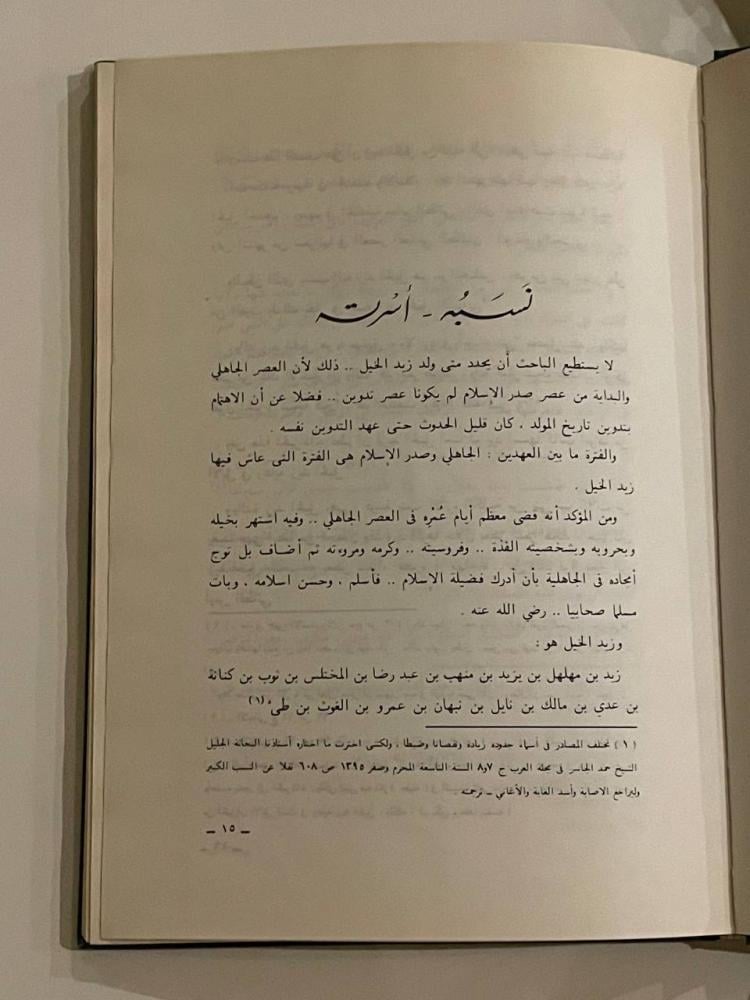 نَسَبُه - أسْرته
لا يستطيع الباحث أن يحدد متى ولد زيد الخيل .. ذلك لأن العصر الجاهلي
والبداية من عصر صدر الإسلام لم يكونا عصر تدوين .. فضلا عن أن الاهتمام
بتدوين تاريخ المولد ، كان قليل الحدوث حتى عهد التدوين نفسه .
والفترة ما بين العهدين : الجاهلي وصدر الإسلام هى الفترة التى عاش فيها
زيد الخيل .
ومن المؤكد أنه قضى معظم أيام عُمْرِه فى العصر الجاهلي .. وفيه اشتهر بخيله
وبحروبه وبشخصيته الفذة .. وفروسيته .. وكرمه ومروءته ثم أضاف بل توج
أمجاده فى الجاهلية بأن أدرك فضيلة الإسلام .. فأسلم ، وحسن اسلامه ، وبات
مسلما صحابيا .. رضي الله عنه .
وزيد الخيل هو :
زيد بن مهلهل بن يزيد بن منهب بن عبد رضا بن المختلس بن ثوب بن كنانة
بن عدي بن مالك بن نايل بن نبهان بن عمرو بن الغوث بن طىء (١)
( ١ ) تختلف المصادر فى أسماء جدوده زيادة ونقصانا وضبطا ، ولكننى اخترت ما اختاره أستاذنا البحاثة الجليل
الشيخ حمد الجاسر فى مجلة العرب ج ٧و٨ السنة التاسعة المحرم وصفر ١٣٩٥ ص ٦٠٨ نقلا عن النسب الكبير
وليراجع الاصابة وأسد الغابة والأغاني - ترجمته .
- ١٥ -